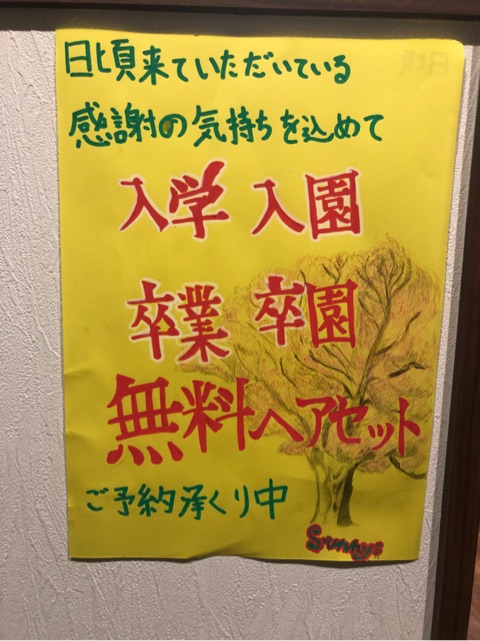 日頃来ていただいている
感謝の気持ちを込めて
入学 入園
卒業 卒園
無料ヘアセット
ご予約承くり中
Sunny's